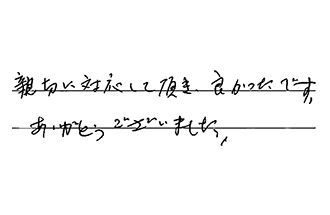 親切に対応して頂き、良かったです。
ありがとうございました。